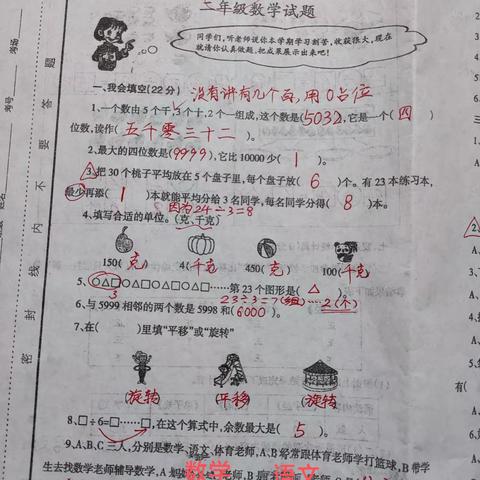 二年级数学试题
同学们,听老师说你本学期学习刻苦,收获很大,现在
就请你认真做题,把成果展示出来吧!
一、我会填空(22分) 没有讲有几个百,用0占位
1、一个数由5个千,3个十,2个一组成,这个数是(5032),它是一个(四)
位数,读作(五千零三十二)。
2、最大的四位数是(9999),它比10000少(1)。
3、把30个桃子平均放在5个盘子里,每个盘子放(6)个。有23本练习本,
最少再添(1)本就能平均分给3名同学,每名同学分得(8)本。
因为24÷3=8
4、填写合适的单位。(克、千克)
150(克) 4(千克) 450(克) 100(千克)
5、○△□○△□○△□○△□……第23个图形是(△)。
3 23÷3=7(组)……2(个)
6、与5999相邻的两个数是5998和(6000)。
7、在( )里填“平移”或“旋转”
(旋转) (平移) (旋转)
8、□÷6=□……□,在这个算式中,余数最大是(5)。
9、A、B、C三人,分别是数学、语文、体育老师,A、B经常跟体育老师学打篮球,B带学
生去找数学老师辅导数学,A
数学 语文
密 封 线 内 不 要 答 题
考场
考号
姓名